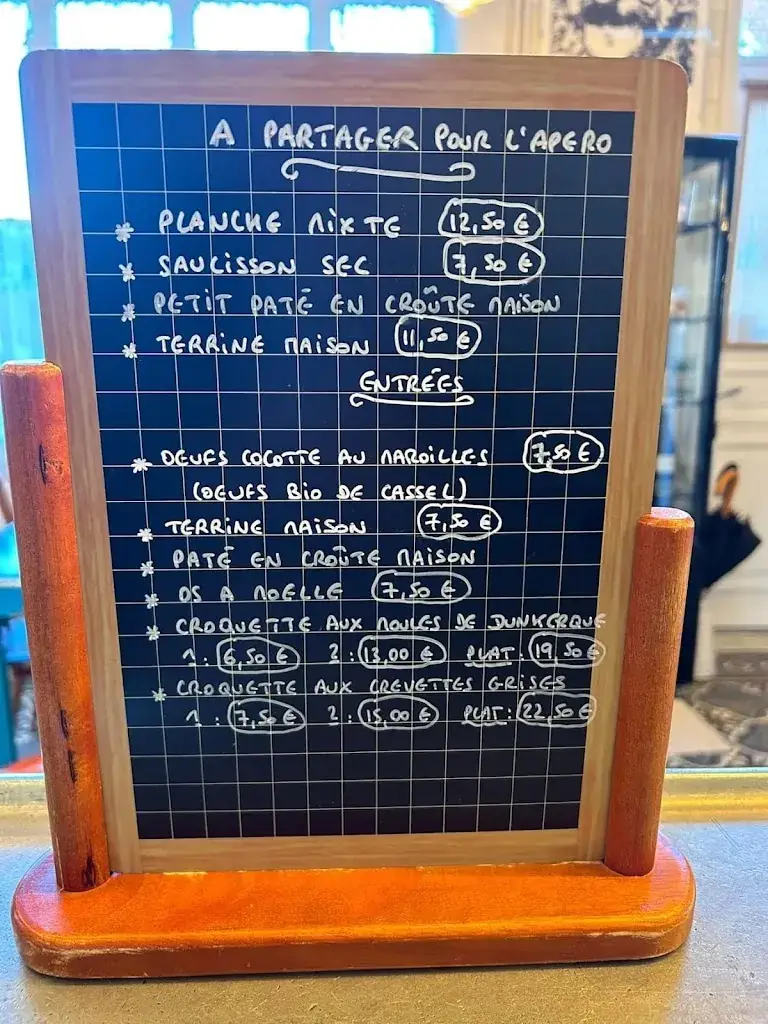 A PARTAGER POUR L'APERO
* PLANCHE MIXTE 12,50 €
* SAUCISSON SEC 7,50 €
* PETIT PATÉ EN CROÛTE MAISON
* TERRINE MAISON 11,50 €
ENTRÉES
* OEUFS COCOTTE AU MAROILLES 7,50 €
(OEUFS BIO DE CASSEL)
* TERRINE MAISON 7,50 €
* PATÉ EN CROÛTE MAISON
* OS A MOELLE 7,50 €
* CROQUETTE AUX MOULES DE DUNKERQUE
1 : 6,50 € 2 : 13,00 € PLAT : 19,50 €
* CROQUETTE AUX CREVETTES GRISES
1 : 7,50 € 2 : 15,00 € PLAT : 22,50 €